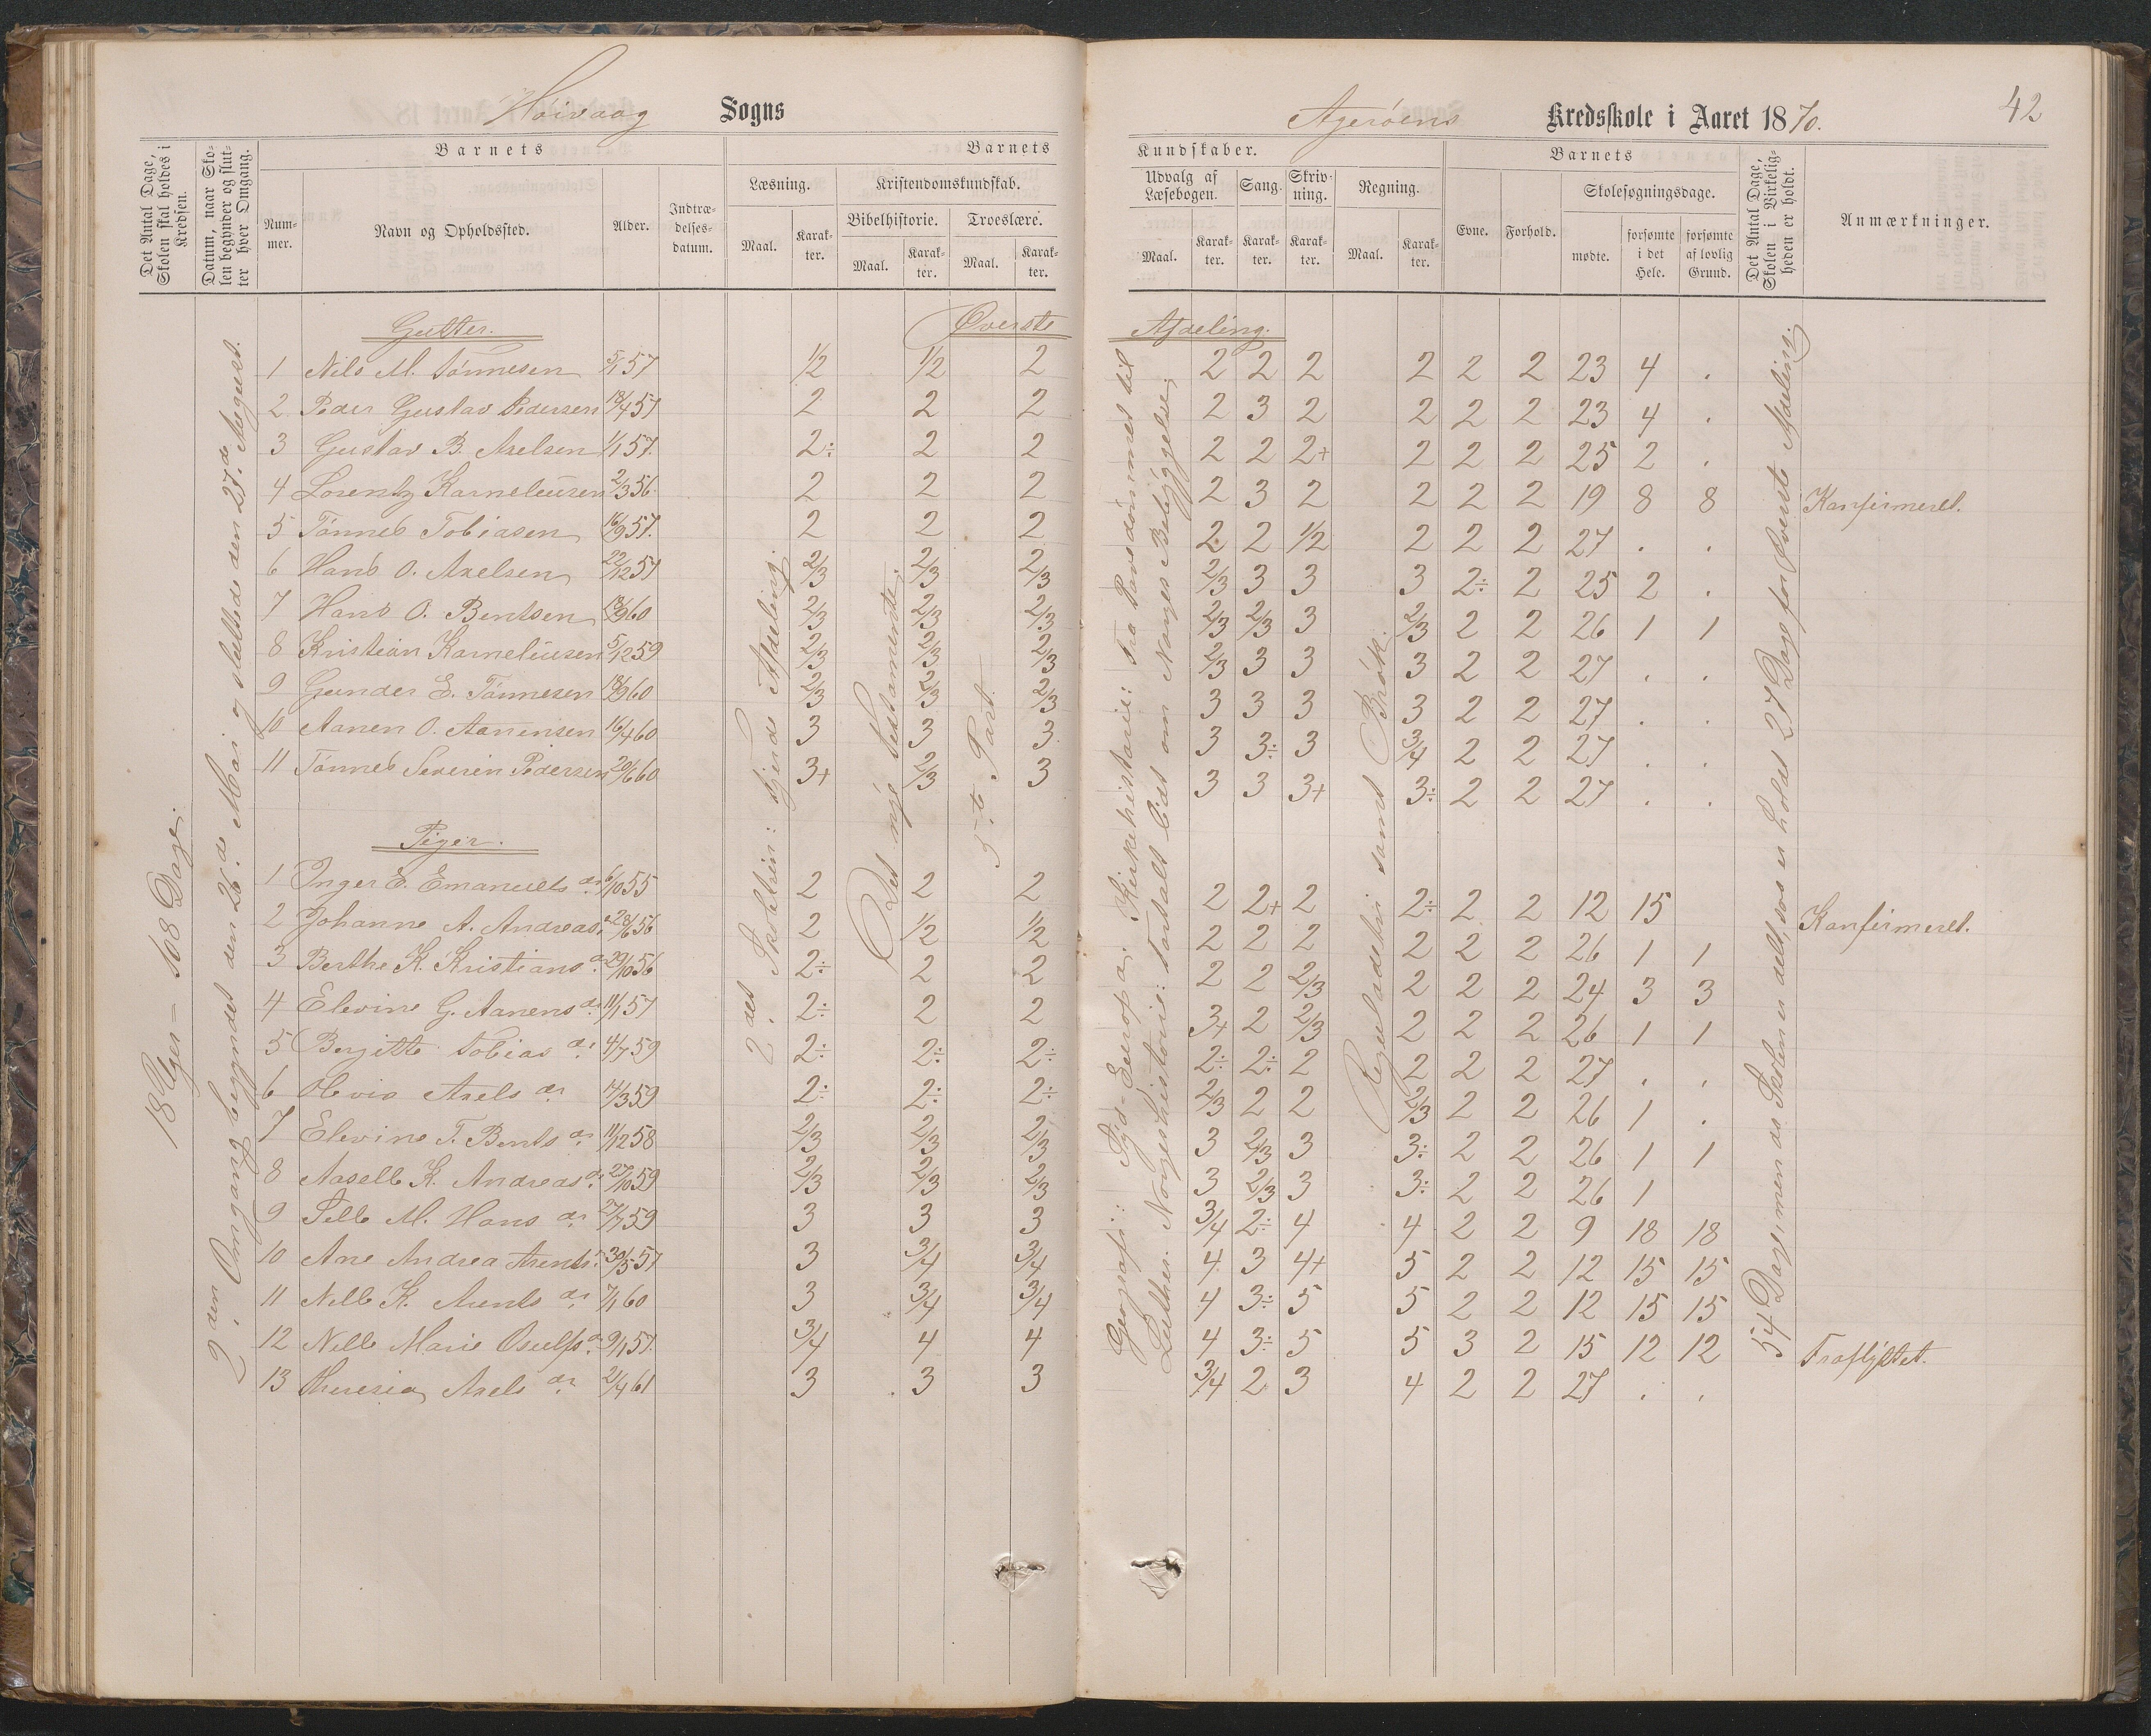 Høivaag Sogns
Agerøens Kredsskole i Aaret 1870. 42
Det Antal Dage, Skolen skal holdes i Kredsen.
Datum, naar Skolen begynder og slutter hver Omgang.
Barnets
Nummer.
Navn og Opholdssted.
Alder.
Indtrædelsesdatum.
Barnets
Læsning.
Maal.
Karakter.
Kristendomskundskab.
Bibelhistorie.
Maal.
Karakter.
Troeslære.
Maal.
Karakter.
Kundskaber.
Udvalg af Læsebogen.
Maal.
Karakter.
Sang.
Karakter.
Skrivning.
Karakter.
Regning.
Maal.
Karakter.
Barnets
Evne.
Forhold.
Skolesøgningsdage.
mødte.
forsømte i det Hele.
forsømte af lovlig Grund.
Det Antal Dage, Skolen i Virkeligheden er holdt.
Anmærkninger.
18 Uger – 108 Dage.
2den Omgang begyndet den 26de Mai og sluttede den 27de August.
2det Skoletrin: fjerde Afdeling.
Det nye Testamente.
5te Part.
Geografi: Syd-Europa. Kirkehistorie: Fra Pavedømmet til
Luther. Norgeshistorie: Fortalt lidt om Norges Bebyggelse.
Reguladetri samt Brøk.
54 Dage, men da Skolen er delt, saa er holdt 27 Dage for Øverste Afdeling.
Gutter. Øverste Afdeling.
1 Nils M. Tønnesen 5/1 57 1/2 1/2 2 2 2 2 2 2 2 23 4 .
2 Peder Gustav Pedersen 18/4 57 2 2 2 2 3 2 2 2 2 23 4 .
3 Gustav B. Axelsen 1/1 57. 2÷ 2 2 2 2 2+ 2 2 2 25 2 .
4 Lorentz Karneliusen 2/3 56. 2 2 2 2 3 2 2 2 2 19 8 8 Konfirmeret.
5 Tønnes Tobiasen 16/9 57. 2 2 2 2 2 1/2 2 2 2 27 . .
6 Hans O. Axelsen 22/12 57 2/3 2/3 2/3 2/3 3 3 3 2÷ 2 25 2 .
7 Hans O. Bentsen 18/9 60 2/3 2/3 2/3 2/3 2/3 3 2/3 2 2 26 1 1
8 Kristian Karneliusen 5/12 59 2/3 2/3 2/3 2/3 3 3 3 2 2 27 . .
9 Gunder E. Tønnesen 18/9 60 2/3 2/3 2/3 3 3 3 3 2 2 27 . .
10 Aanen O. Aanensen 16/4 60 3 3 3 3 3÷ 3 3/4 2 2 27 . .
11 Tønnes Severin Pedersen 20/6 60 3+ 2/3 3 3 3 3+ 3÷ 2 2 27 . .
Piger.
1 Inger E. Emanuels dr 6/10 55 2 2 2 2 2+ 2 2÷ 2 2 12 15
2 Johanne A. Andreas dr 28/6 56 2 1/2 1/2 2 2 2 2 2 2 26 1 1 Konfirmeret.
3 Berthe K. Kristians dr 29/10 56 2÷ 2 2 2 2 2/3 2 2 2 24 3 3
4 Elevine G. Aanens dr 11/1 57 2÷ 2 2 3+ 2 2/3 2 2 2 26 1 1
5 Bergitte Tobias dr 4/7 59 2÷ 2÷ 2÷ 2÷ 2÷ 2 2 2 2 27 . .
6 Olevia Axels dr 14/3 59 2÷ 2÷ 2÷ 2/3 2 2 2/3 2 2 26 1 .
7 Elevine T. Bents dr 11/12 58 2/3 2/3 2/3 3 2/3 3 3÷ 2 2 26 1 1
8 Aaselle K. Andreas dr 27/10 59 2/3 2/3 2/3 3 2/3 3 3÷ 2 2 26 1
9 Sille M. Hans dr 27/7 59 3 3 3 3/4 2÷ 4 4 2 2 9 18 18
10 Ane Andrea Arents dr 30/5 57 3 3/4 3/4 4 3 4+ 5 2 2 12 15 15
11 Nille K. Arents dr 7/1 60 3 3/4 3/4 4 3÷ 5 5 2 2 12 15 15
12 Nille Marie Osulfs dr 9/1 57. 3/4 4 4 4 3÷ 5 5 3 2 15 12 12 Fraflyttet.
13 Theresia Axels dr 2/4 61 3 3 3 3/4 2 3 4 2 2 27 . .